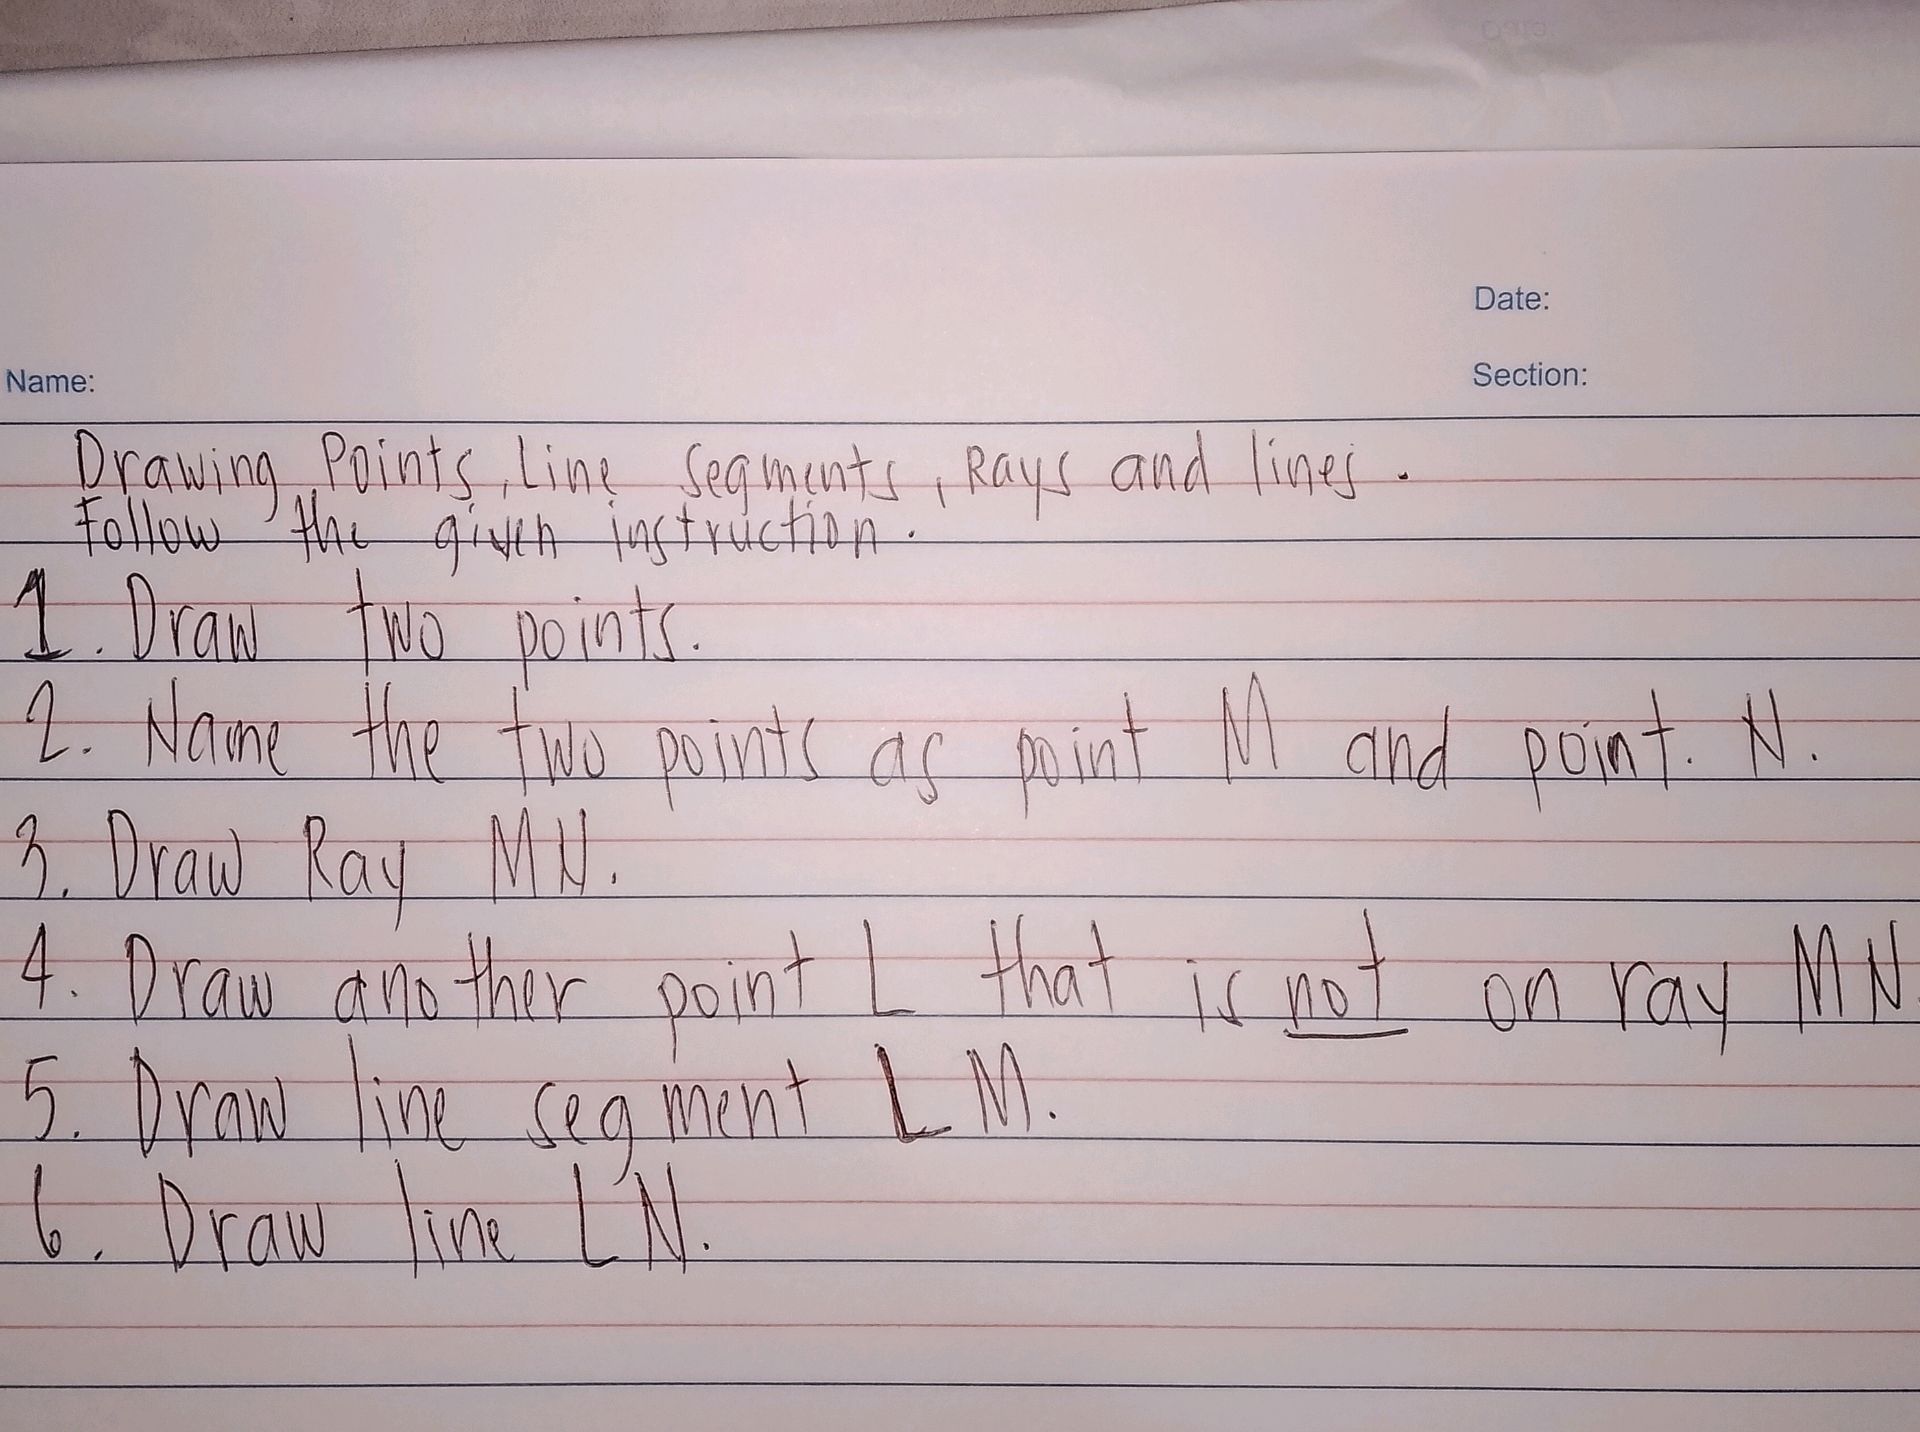 Date:
Name:
Section:
Drawing Points, Line Segments, Rays and lines.
Follow the given instruction.
1. Draw two points.
2. Name the two points as point M and point. N.
3. Draw Ray MN.
4. Draw another point L that is not on ray MN.
5. Draw line segment LM.
6. Draw line LN.